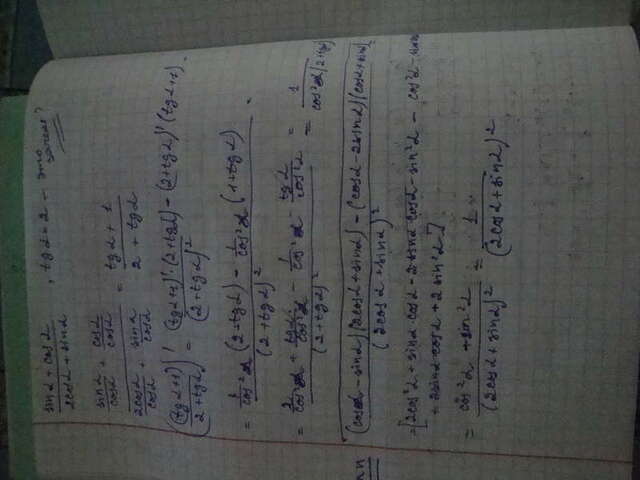 sinα + cosα / 2cosα + sinα , tgα = 2 - это зачем?
sinα/cosα + cosα/cosα / 2cosα/cosα + sinα/cosα = tgα + 1 / 2 + tgα
((tgα+1) / (2+tgα))' = (tgα+1)'·(2+tgα) - (2+tgα)'(tgα+1) / (2+tgα)²
= 1/cos²α (2+tgα) - 1/cos²α (1+tgα) / (2+tgα)²
= 2/cos²α + tgα/cos²α - 1/cos²α - tgα/cos²α / (2+tgα)² = 1 / cos²α(2+tgα)²
(cosα - sinα)(2cosα + sinα) - (cosα - 2sinα)(cosα + sinα) / (2cosα + sinα)²
= [2cos²α + sinα·cosα - 2sinα·cosα - sin²α - cos²α - sinα
+ 2sinα·cosα + 2sin²α]
= cos²α + sin²α / (2cosα + sinα)² = 1 / (2cosα + sinα)²